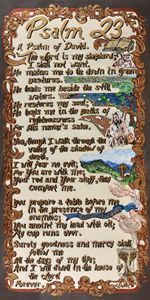 Psalm 23
A Psalm of David.
The Lord is my shepherd;
I shall not want.
He makes me to lie down in green
pastures.
He leads me beside the still
waters.
He restores my soul;
He leads me in the paths of
righteousness
For His name's sake.
Yea, though I walk through the
valley of the shadow of
death,
I will fear no evil;
For you are with me;
Your rod and your staff, they
comfort me.
You prepare a table before me
in the presence of my
enemies;
You anoint my head with oil;
My cup runs over.
Surely goodness and mercy shall
follow me
All the days of my life;
And I will dwell in the house of
the Lord
Forever.